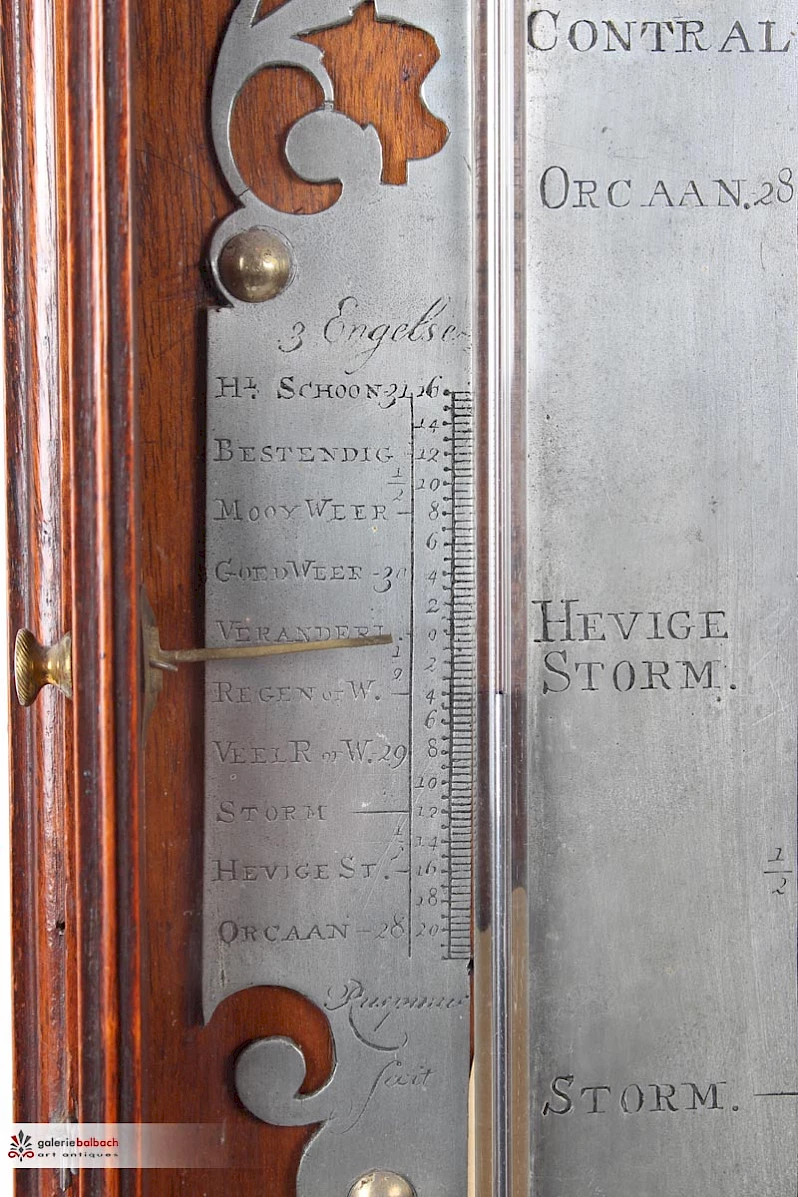 CONTRAL
ORCAAN. 28
3 Engelse
Ht. SCHOON 31 16
14
BESTENDIG 12
1/2 10
MOOY WEER 8
6
GOED WEER 30 4
2
VERANDERL. 0
1/2 2
REGEN of W. 4
6
VEEL R of W. 29 8
10
STORM 12
1/2 14
HEVIGE ST. 16
18
ORCAAN 28 20
fecit
HEVIGE
STORM.
1/2
STORM.
galeriebalbach
art antiques